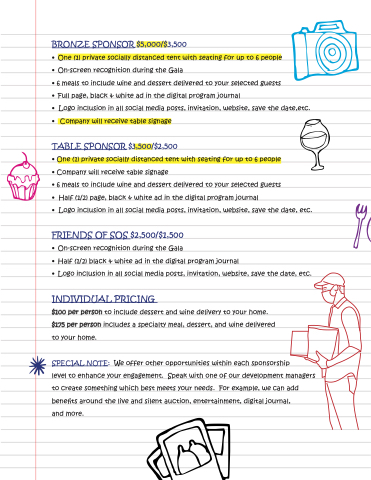 BRONZE SPONSOR $5,000/$3,500
• One (1) private socially distanced tent with seating for up to 6 people
• On-screen recognition during the Gala
• 6 meals to include wine and dessert delivered to your selected guests
• Full page, black & white ad in the digital program journal
• Logo inclusion in all social media posts, invitation, website, save the date,etc.
• Company will receive table signage
TABLE SPONSOR $3,500/$2,500
• One (1) private socially distanced tent with seating for up to 6 people
• Company will receive table signage
• 6 meals to include wine and dessert delivered to your selected guests
• Half (1/2) page, black & white ad in the digital program journal
• Logo inclusion in all social media posts, invitation, website, save the date, etc.
FRIENDS OF SOS $2,500/$1,500
• On-screen recognition during the Gala
• Half (1/2) black & white ad in the digital program journal
• Logo inclusion in all social media posts, invitation, website, save the date, etc.
INDIVIDUAL PRICING
$100 per person to include dessert and wine delivery to your home.
$175 per person includes a specialty meal, dessert, and wine delivered
to your home.
SPECIAL NOTE: We offer other opportunities within each sponsorship
level to enhance your engagement. Speak with one of our development managers
to create something which best meets your needs. For example, we can add
benefits around the live and silent auction, entertainment, digital journal,
and more.